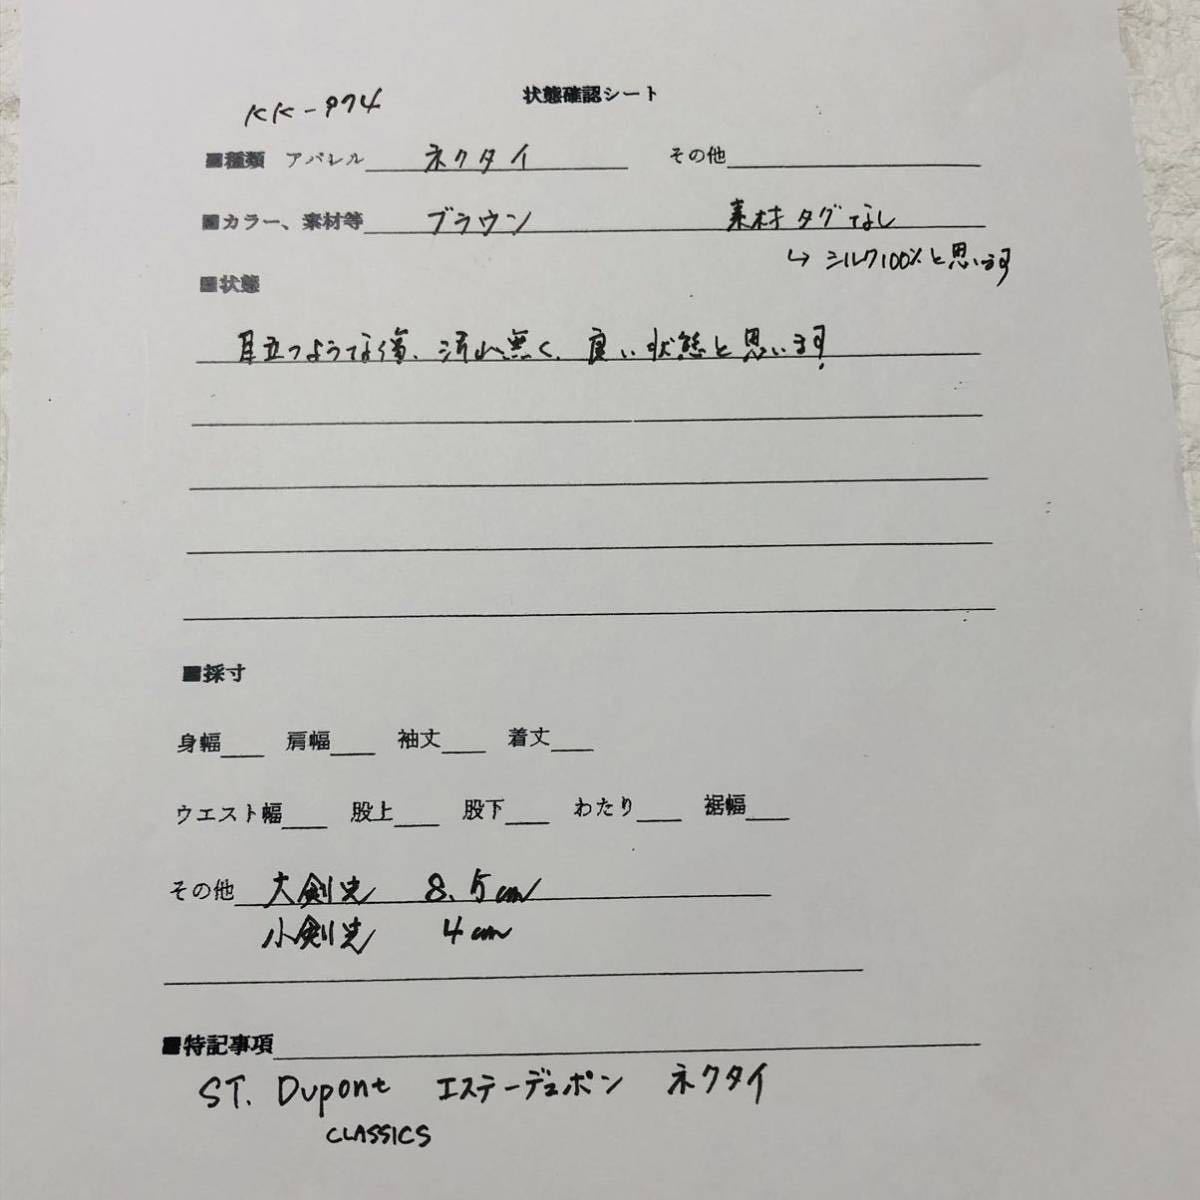 状態確認シート
KK-974
■種類 アパレル ネクタイ その他
■カラー、素材等 ブラウン 素材タグなし
↳ シルク100%と思います
■状態
目立つような傷、汚れ無く、良い状態と思います。
■採寸
身幅 肩幅 袖丈 着丈
ウエスト幅 股上 股下 わたり 裾幅
その他 大剣先 8.5cm
小剣先 4cm
■特記事項
ST. Dupont エステーデュポン ネクタイ
CLASSICS